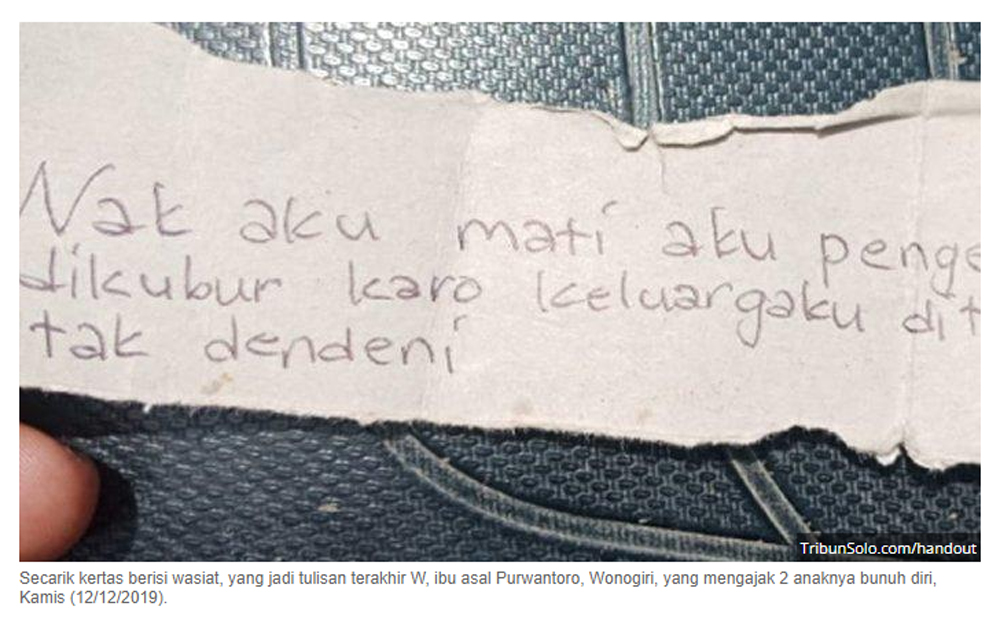 Nak aku mati aku penge
dikubur karo keluargaku dit
tak dendeni
TribunSolo.com/handout
Secarik kertas berisi wasiat, yang jadi tulisan terakhir W, ibu asal Purwantoro, Wonogiri, yang mengajak 2 anaknya bunuh diri,
Kamis (12/12/2019).